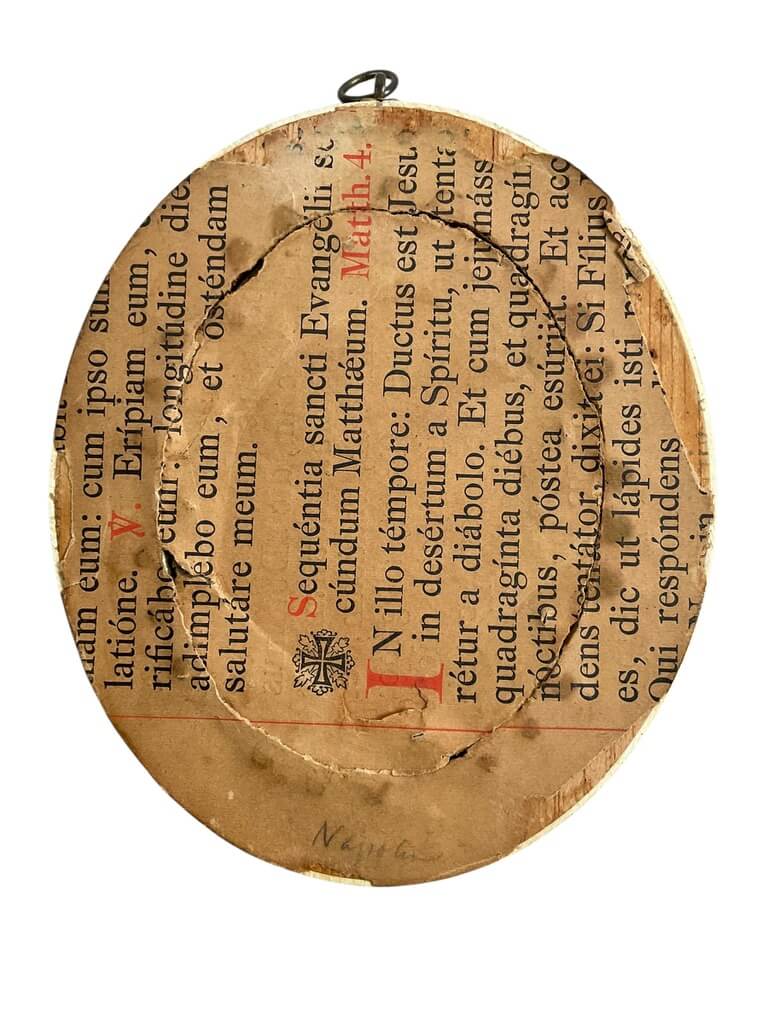 eum: cum ipso sum
latióne. ℣. Erípiam eum,
rificábo eum: longitúdine die
adimplébo eum, et osténdam
salutáre meum.
✠ Sequéntia sancti Evangélii se
cúndum Matthǽum. Matth. 4.
IN illo témpore: Ductus est Jesu
in desértum a Spíritu, ut tenta
rétur a diábolo. Et cum jejunáss
quadragínta diébus, et quadragín
nóctibus, póstea esúriit. Et acc
dens tentátor dixit ei: Si Fílius
es, dic ut lápides isti
Qui respóndens